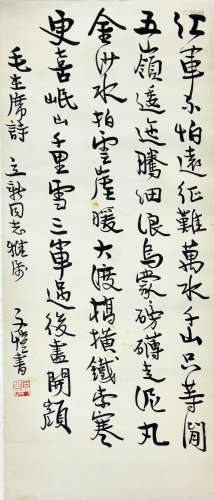 江軍不怕遠征難萬水千山只等閒
五嶺逶迤騰細浪烏蒙磅礴走泥丸
金沙水拍雲崖暖大渡橋橫鐵索寒
更喜岷山千里雪三軍過後盡開顏
毛主席詩 立新同志雅属
子愷書